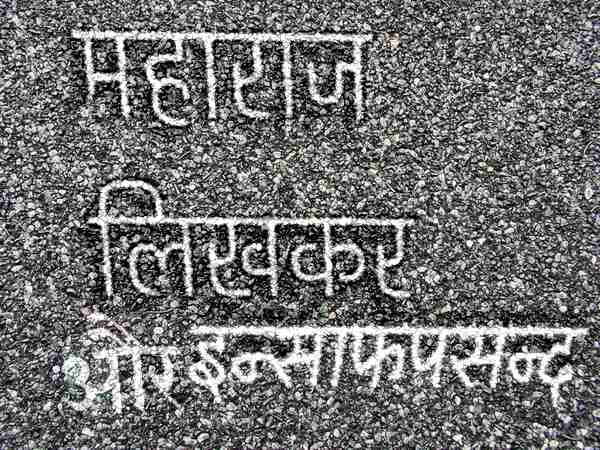 महाराज
लिखकर
और इन्साफपसन्द